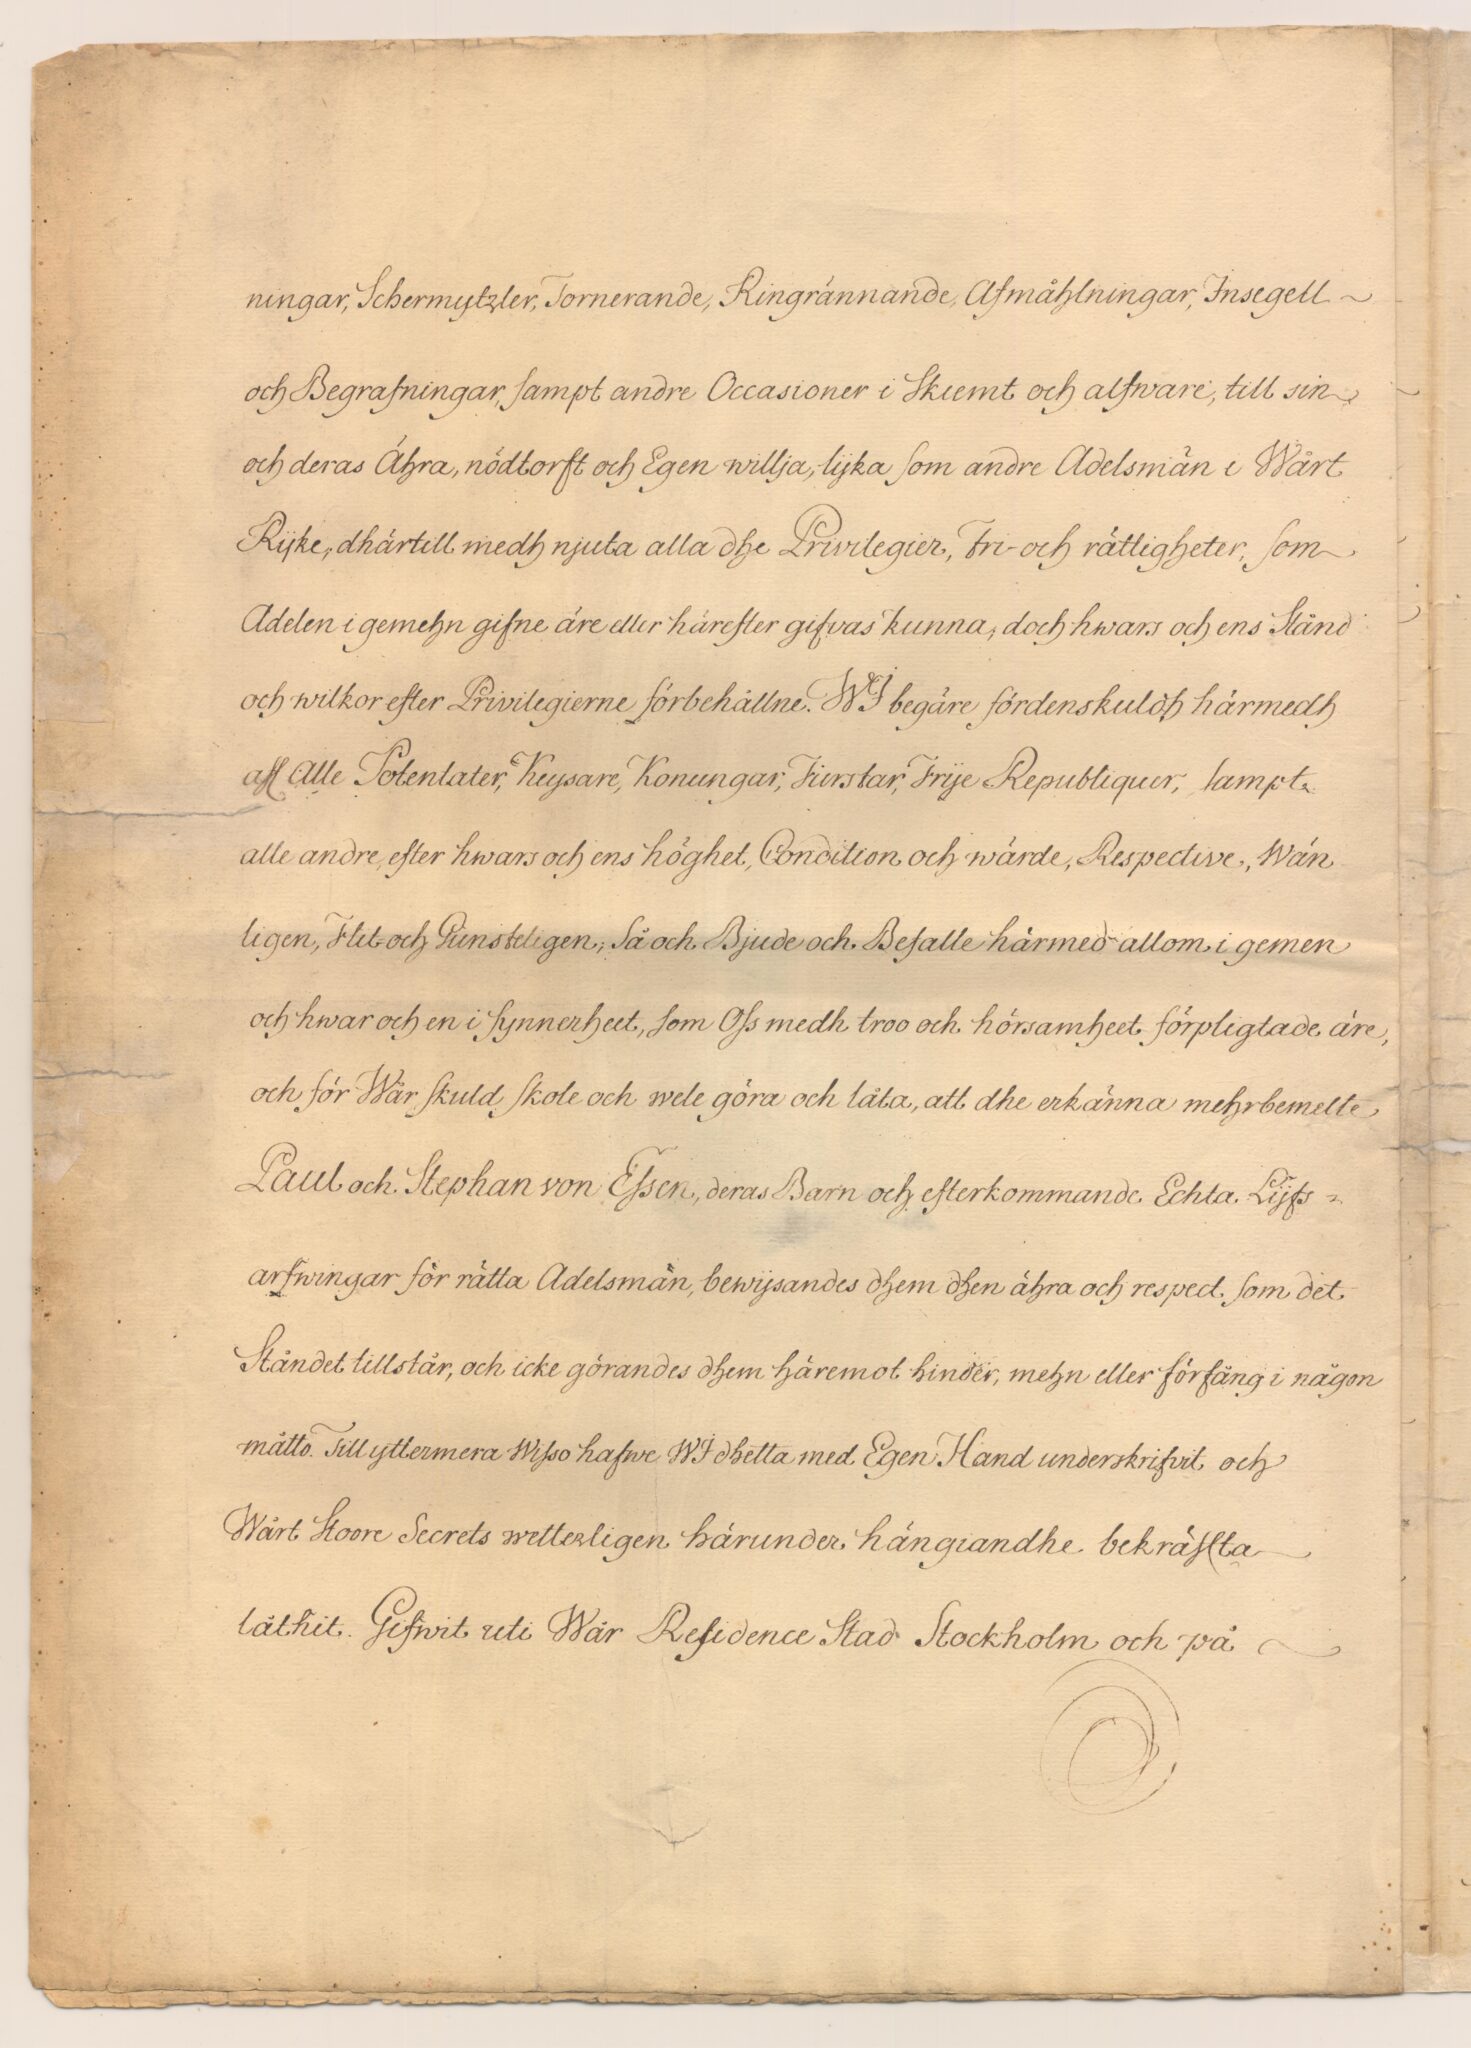 ningar, Schermytzler, Tornerande, Ringrännande, Afmåhlningar, Insegell
och Begrafningar, sampt andre Occasioner i Skiemt och alfware, till sin
och deras Ähra, nödtorft och Egen willja, lijka som andre Adelsmän i Wårt
Rijke, dhärtill medh njuta alla dhe Privilegier, Fri- och rättigheter, som
Adelen i gemehn gifne äre eller härefter gifvas kunna, doch hwars och ens Stånd
och wilkor efter Privilegierne förbehållne. WJ begäre fördenskuldh härmedh
aff Alle Potentater, Keysare, Konungar, Fürstar, Frije Republiquer, sampt
alle andre, efter hwars och ens höghet, Condition och wärde, Respective, Wän
ligen, Flit- och Günsteligen, Så och Bjude och Befalle härmed allom i gemen
och hwar och en i synnerheet, som Oss medh troo och hörsamheet förpligtade äre,
och för Wår skuld skole och wele göra och låta, att dhe erkänna mehrbemelte
Paul och Stephan von Essen, deras Barn och efterkommande Echta Lijfs=
arfwingar för rätta Adelsmän, bewijsandes dhem dhen ähra och respect som det
Ståndet tillstår, och icke görandes dhem häremot hinder, mehn eller förfång i någon
måtto. Till yttermera Wisso hafwe WJ dhetta med Egen Hand underskrifvit och
Wårt Stoore Secrets wetterligen härunder hängiandhe bekräffta
låthit. Gifwit uti Wår Residence Stad Stockholm och på